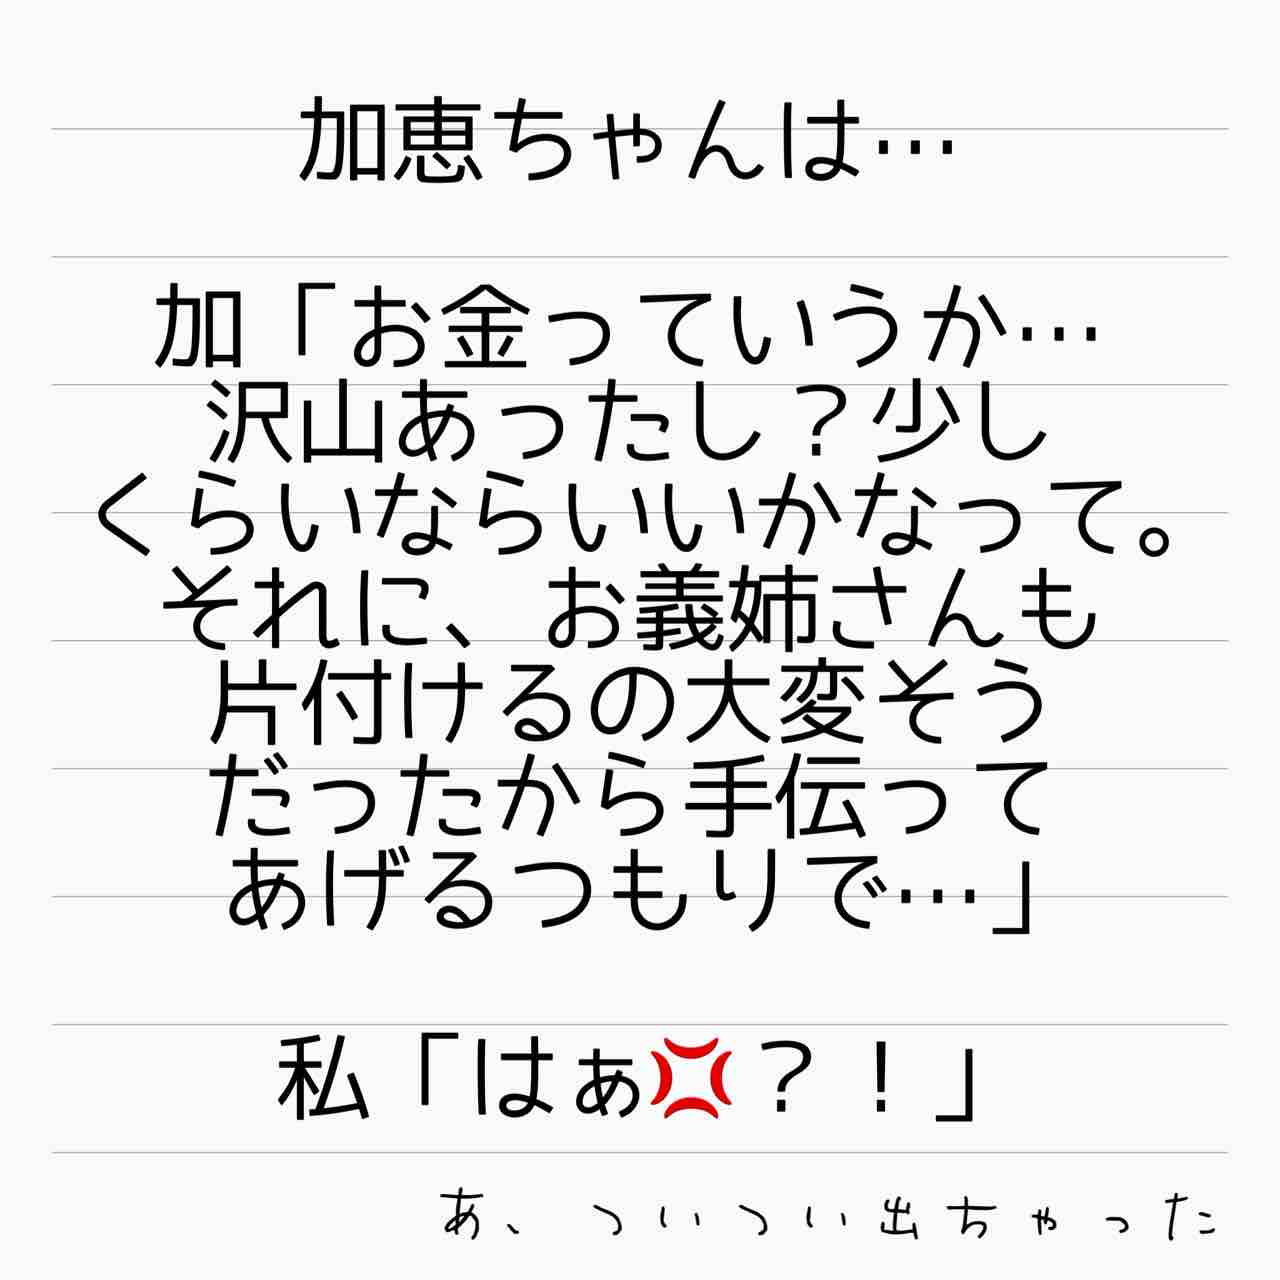 加恵ちゃんは…
加「お金っていうか…
沢山あったし？少し
くらいならいいかなって。
それに、お義姉さんも
片付けるの大変そう
だったから手伝って
あげるつもりで…」
私「はぁ💢？！」
あ、ついつい出ちゃった